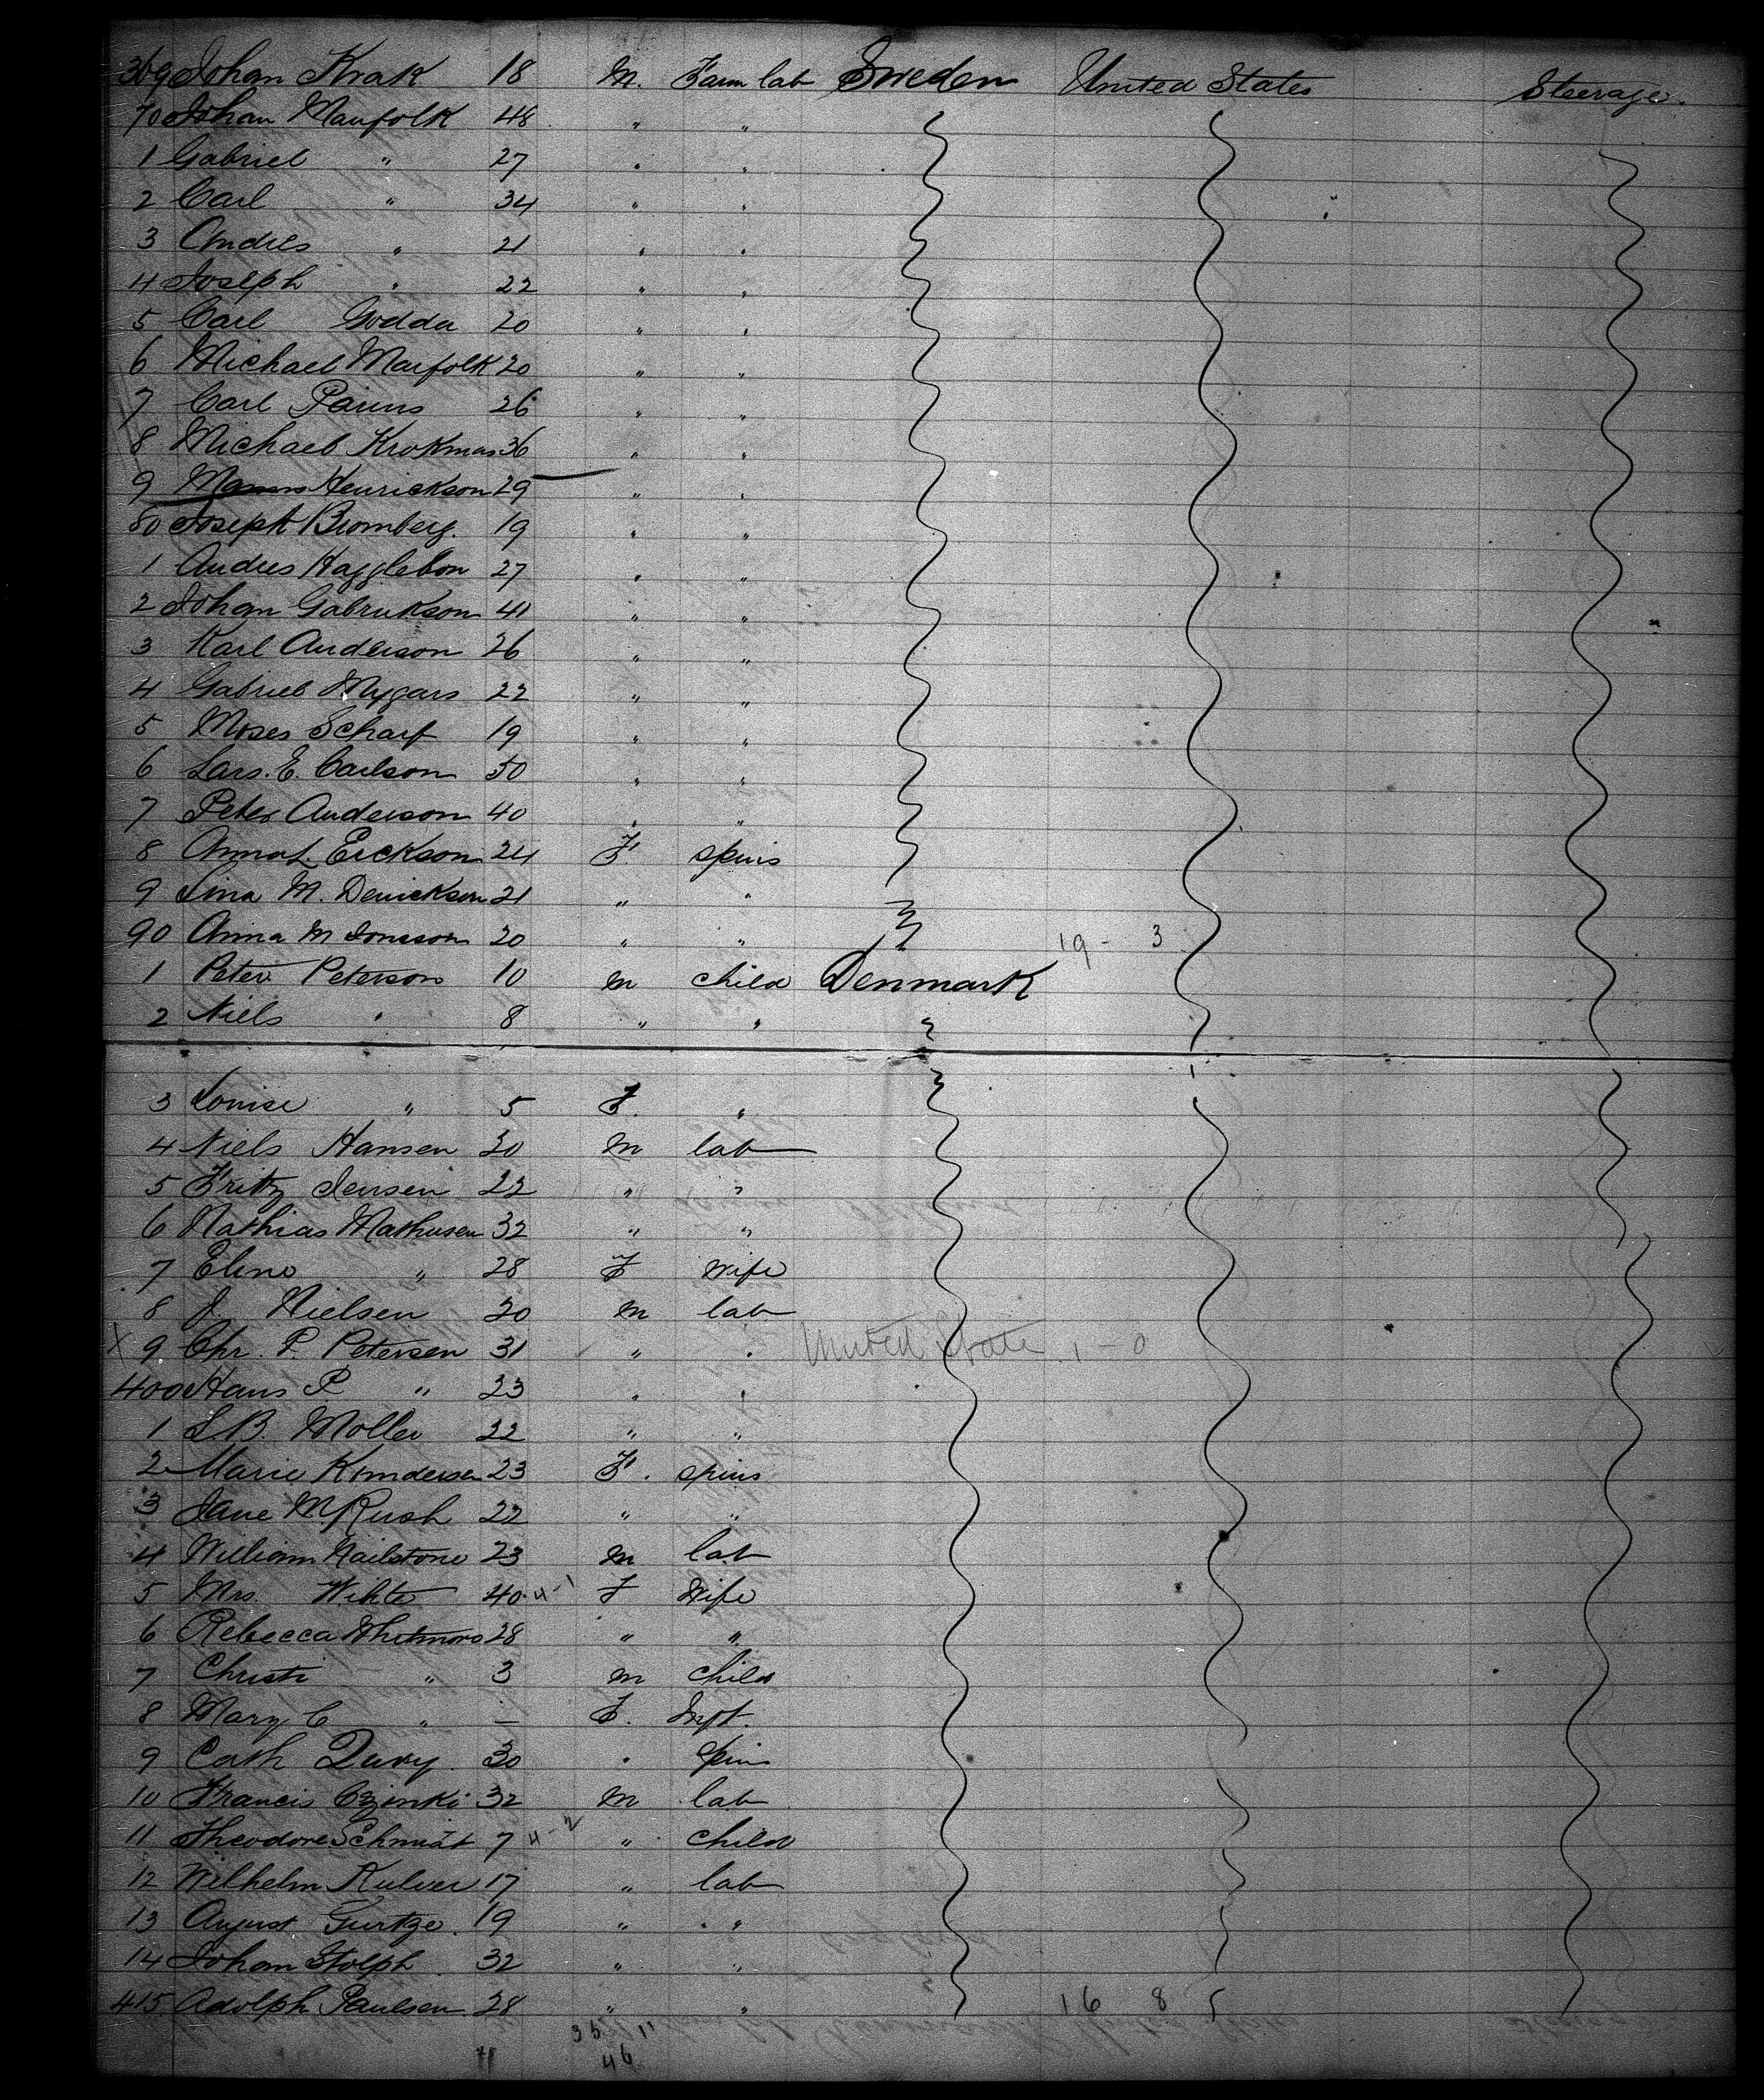 369 Johan Krak 18 M. Farm lab Sweden United States Steerage.
70 Johan Maufolk 48 " "
1 Gabriel " 27 " "
2 Carl " 34 " "
3 Andres " 21 " "
4 Joseph " 22 " "
5 Carl Godda 20 " "
6 Michael Marfolk 20 " "
7 Carl Parins 26 " "
8 Michael Krokmas 36 " "
9 Henrickson 29 " "
80 Joseph Bromberg. 19 " "
1 Andres Hagglebon 27 " "
2 Johan Gabrukson 41 " "
3 Karl Anderson 26 " "
4 Gabriel Mygars 22 " "
5 Moses Scharf 19 " "
6 Lars. E. Carlson 50 " "
7 Peter Anderson 40 " "
8 Anna L. Erckson 24 F. spins
9 Lina M. Derrickson 21 " "
90 Anna M Jonsson 20 " " 19 - 3
1 Peter Peterson 10 m child Denmark
2 Niels " 8 " "
3 Louise " 5 F. "
4 Niels Hansen 30 m lab
5 Fritz Jensen 22 " "
6 Mathias Mathusen 32 " "
7 Eline " 28 F Wife
8 J. Nielsen 20 m lab
X 9 Chr. P. Petersen 31 " " United State 1 - 0
400 Hans P " 23 " "
1 L B. Moller 22 " "
2 Marie Kumdersen 23 F. spins
3 Jane M. Rush 22 " "
4 William Hailstone 23 m lab
5 Mrs. Wihte 40 4-1 F Wife
6 Rebecca Whitmore 28 " "
7 Christi " 3 m child
8 Mary C " — F. Inft.
9 Cath Quay 30 " Spin
10 Francis Czinki 32 m lab
11 Theodore Schmidt 7 4-2 " child
12 Wilhelm Kulver 17 " lab
13 August Gurtze. 19 " "
14 Johan Stolph 32 " "
415 Adolph Paulsen 28 " " 16 8 5
35 11
46